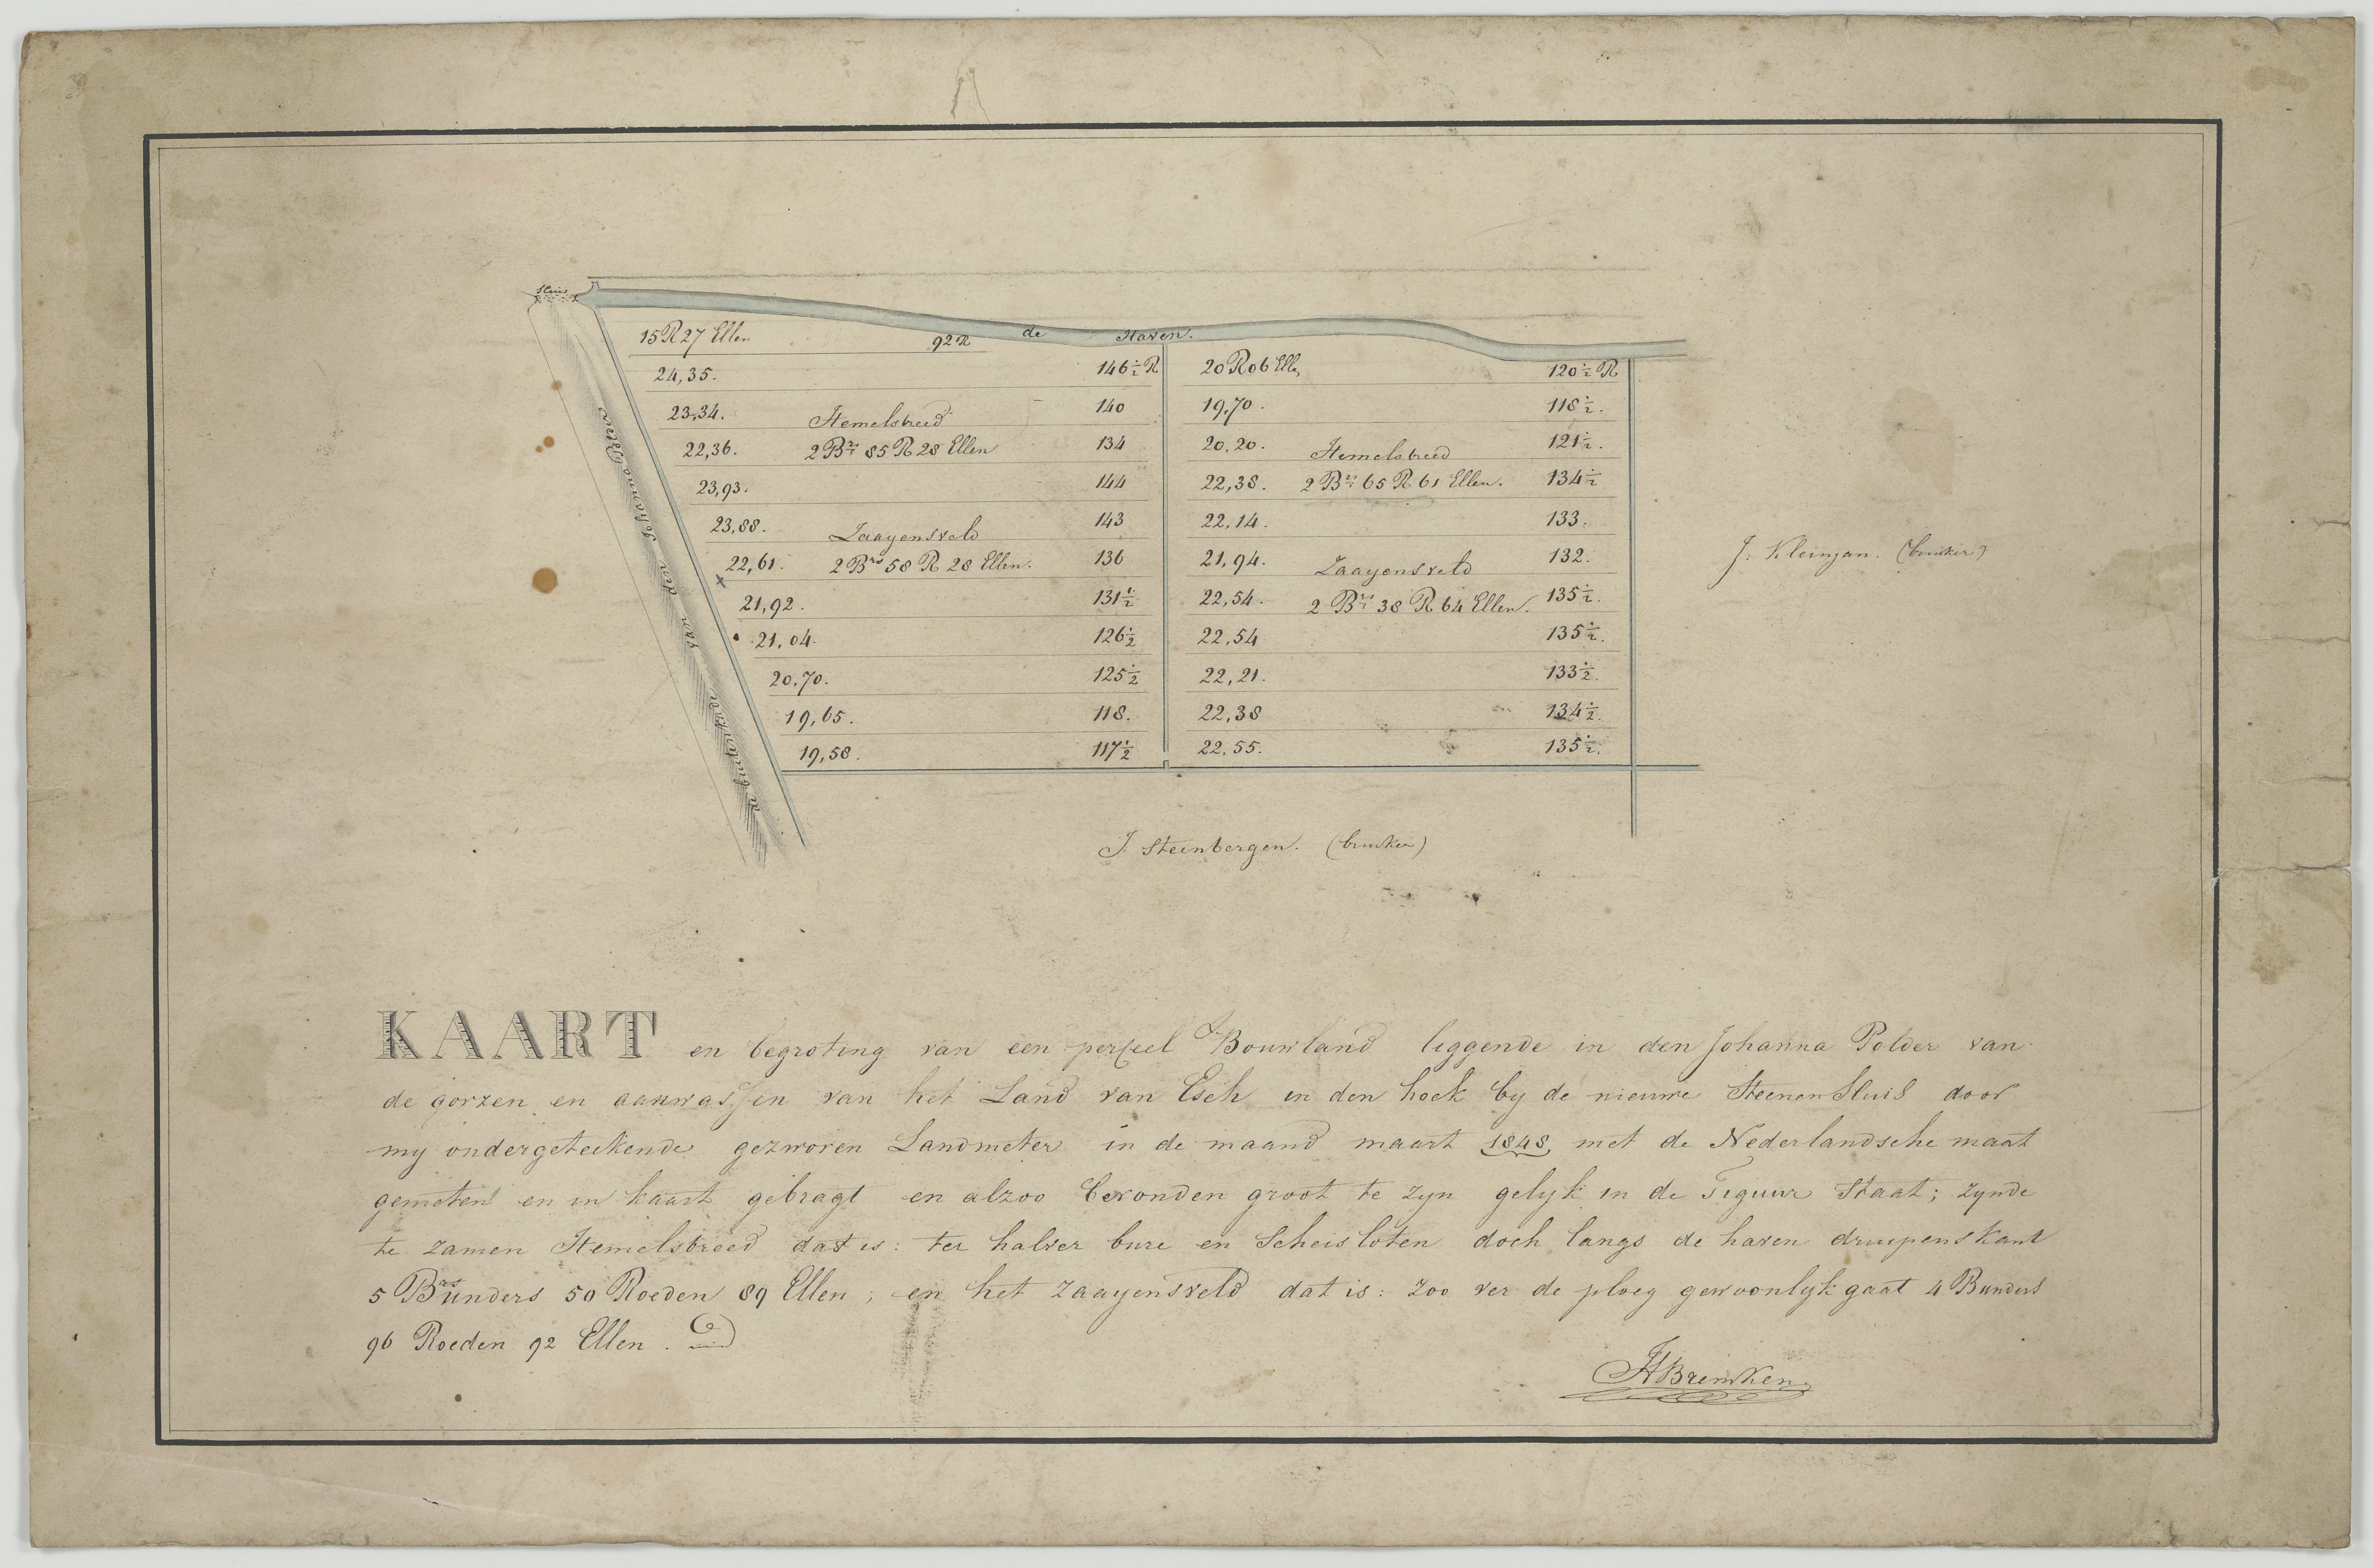 Sluis
de Haven.
15 R 27 Ellen
92 R
24,35.
146½ R
23,34.
Hemelsbreed
140
22,36.
2 Brs 85 R 28 Ellen
134
23,93.
144
23,88.
Zaayensveld
143
22,61.
2 Brs 58 R 28 Ellen.
136
21,92.
131½
21,04.
126½
20,70.
125½
19,65.
118.
19,58.
117½
20 R 06 Ell,
120½ R
19,70.
118½.
20,20.
Hemelsbreed
121½.
22,38.
2 Brs 65 R 61 Ellen.
134½
22,14.
133.
21,94.
Zaayensveld
132.
22,54.
2 Brs 38 R 64 Ellen.
135½.
22,54
135½.
22,21.
133½.
22,38
134½.
22,55.
135½.
de buitenkade van den Johanna Polder
J: Kleinjan. (bruiker)
J. Steenbergen. (bruiker)
KAART en begroting van een perseel Bouwland leggende in den Johanna Polder van
de gorzen en aanwassen van het Land van Esch in den hoek by de nieuwe Steenen Sluis door
my ondergeteekende gezworen Landmeter in de maand maart 1848 met de Nederlandsche maat
gemeten en in kaart gebragt en alzoo bevonden groot te zyn gelyk in de Figuur Staat; zynde
te zamen Hemelsbreed dat is: ter halver bure en Scheisloten doch langs de haven druipenskant
5 Bunders 50 Roeden 89 Ellen; en het Zaayensveld dat is: zoo ver de ploeg gewoonlyk gaat 4 Bunders
96 Roeden 92 Ellen.